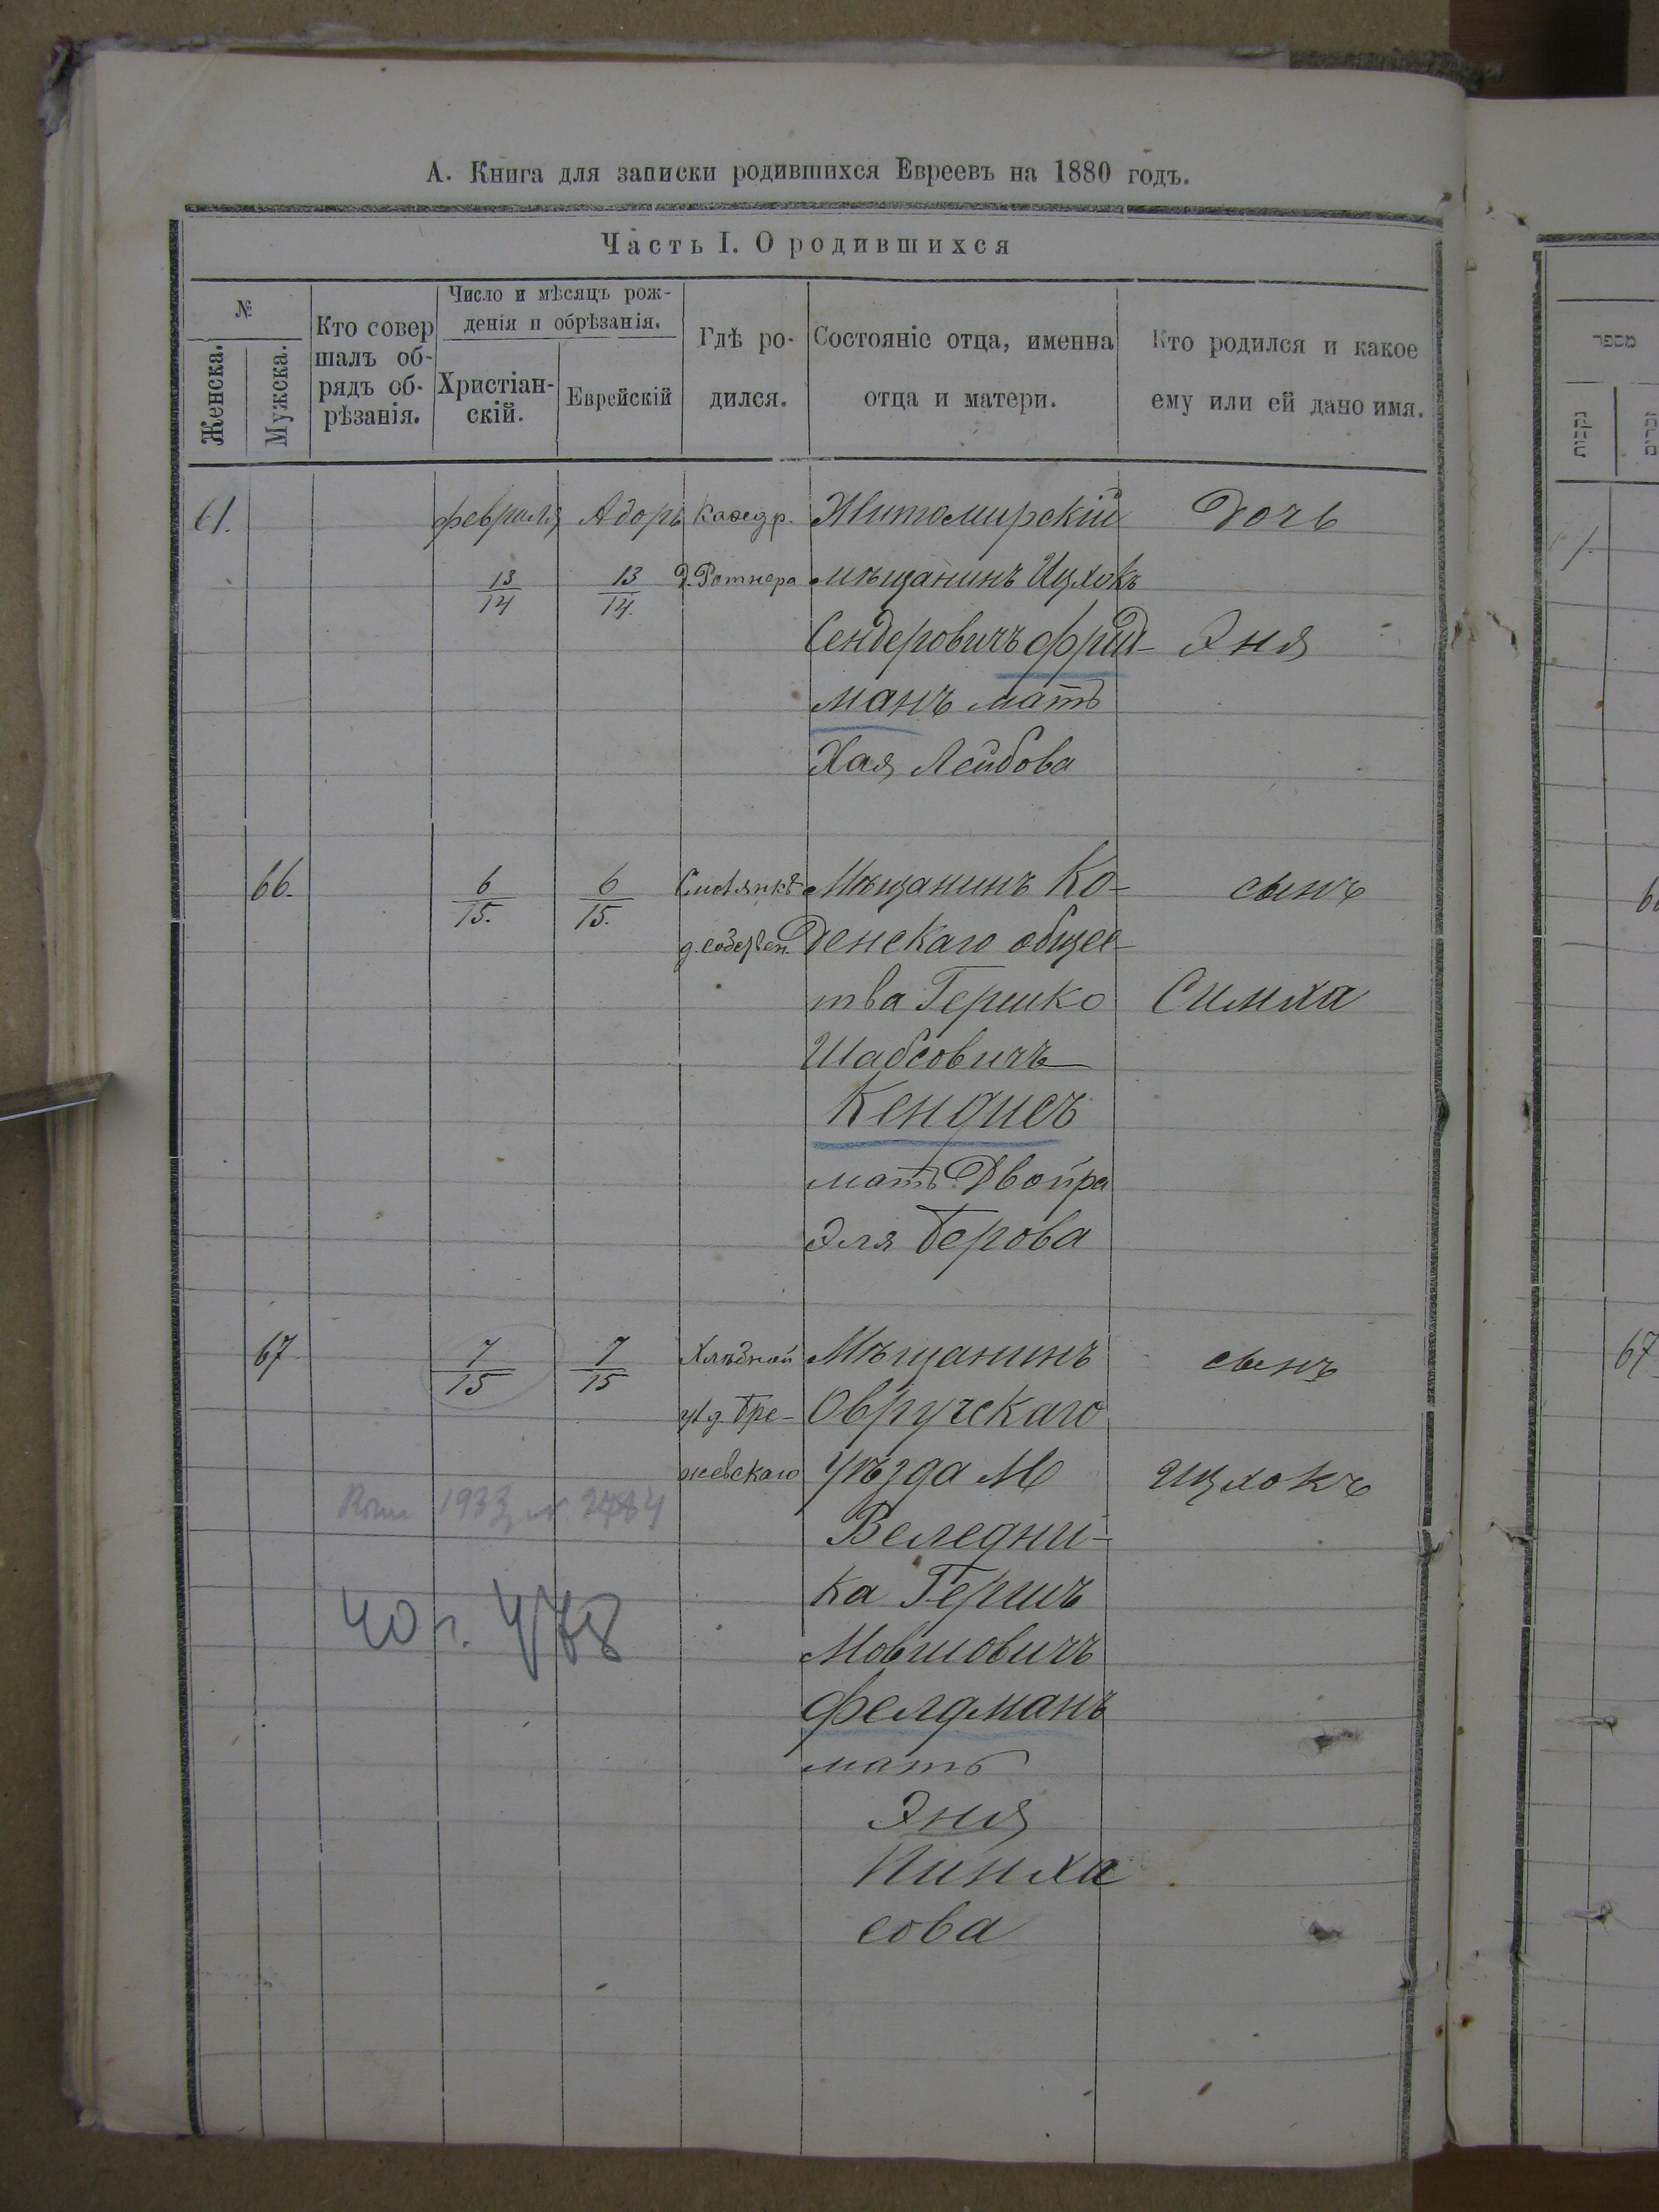 А. Книга для записки родившихся Евреевъ на 1880 годъ.
Часть I. О родившихся
№
Женска.
Мужска.
Кто совер
шалъ об-
рядъ об-
рѣзанія.
Число и мѣсяцъ рож-
денія и обрѣзанія.
Христіан-
скій.
Еврейскій
Гдѣ ро-
дился.
Состояніе отца, именна
отца и матери.
Кто родился и какое
ему или ей дано имя.
61.
февраля
13
14
Адоръ
13
14.
Кафедр.
д. Ротнера
Житомирскій
мѣщанинъ Ицхокъ
Сендеровичъ Фрид-
манъ мать
Хая Лейбова
Дочь
Эня
66.
6
15.
6
15.
д. собствен.
Мѣщанинъ Ко-
денскаго общес-
тва Гершко
Шабсовичъ
Кендисъ
мать Двойра
Эля Берова
сынъ
Симха
67
7
15
7
15
Хлѣбной
ул д. Бре-
жевскаго
Мѣщанинъ
Овручскаго
уѣзда М
Веледни-
ка Гершъ
Мовшовичъ
Фелдманъ
мать
Эня
Пинха
сова
сынъ
Ицхокъ
1933 № 2484
40 г. 478
מספר
נקבות
זכרים
67